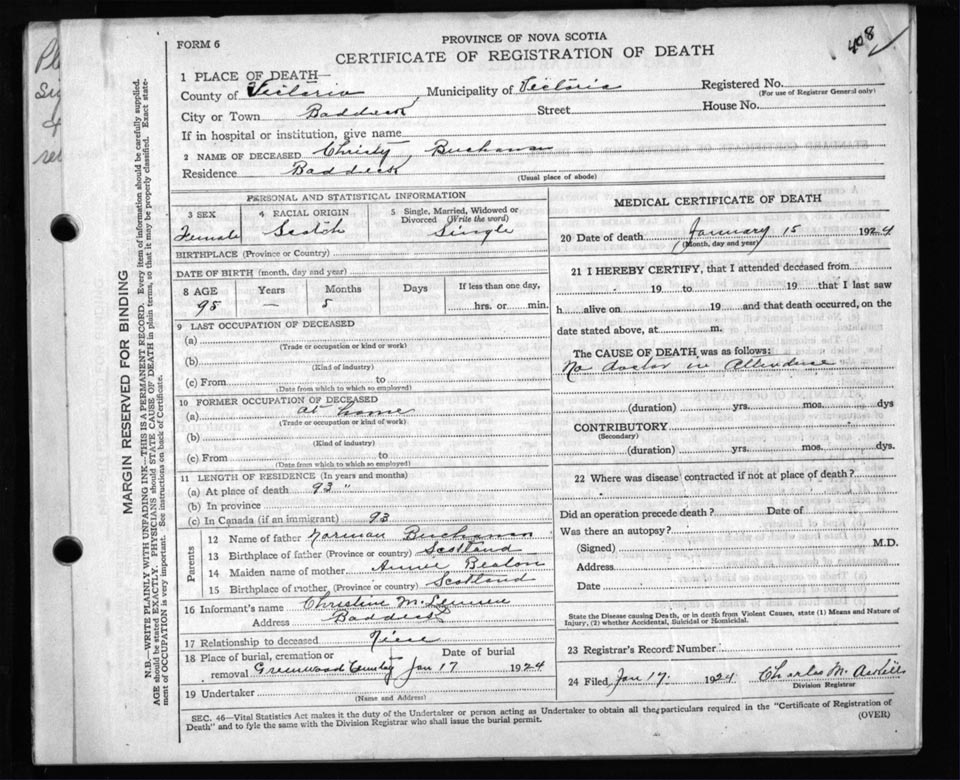 408
FORM 6
PROVINCE OF NOVA SCOTIA
CERTIFICATE OF REGISTRATION OF DEATH
1 PLACE OF DEATH—
County of Victoria, Municipality of Victoria Registered No.
(For use of Registrar General only)
City or Town Baddeck Street House No.
If in hospital or institution, give name
2 NAME OF DECEASED Christy Buchanan
Residence Baddeck
(Usual place of abode)
PERSONAL AND STATISTICAL INFORMATION
3 SEX 4 RACIAL ORIGIN 5 Single, Married, Widowed or Divorced (Write the word)
Female Scotch Single
BIRTHPLACE (Province or Country)
DATE OF BIRTH (month, day and year)
8 AGE Years Months Days If less than one day,
98 — 5 hrs. or min.
9 LAST OCCUPATION OF DECEASED
(a)
(Trade or occupation or kind or work)
(b)
(Kind of industry)
(c) From to
(Date from which to which so employed)
10 FORMER OCCUPATION OF DECEASED
(a) at home
(Trade or occupation or kind of work)
(b)
(Kind of industry)
(c) From to
(Date from which to which so employed)
11 LENGTH OF RESIDENCE (In years and months)
(a) At place of death 93 "
(b) In province
(c) In Canada (if an immigrant) 93
Parents
12 Name of father Norman Buchanan
13 Birthplace of father (Province or country) Scotland
14 Maiden name of mother Annie Beaton
15 Birthplace of mother (Province or country) Scotland
16 Informant's name Christine
Address Baddeck
17 Relationship to deceased Niece
18 Place of burial, cremation or Date of burial
removal Greenwood Cemetery Jan 17 1924
19 Undertaker
(Name and Address)
MEDICAL CERTIFICATE OF DEATH
20 Date of death January 15 1924
(Month, day and year)
21 I HEREBY CERTIFY, that I attended deceased from
19 to 19 that I last saw
h alive on 19 and that death occurred, on the
date stated above, at m.
The CAUSE OF DEATH was as follows:
No doctor in Attendance
(duration) yrs. mos. dys
CONTRIBUTORY
(Secondary)
(duration) yrs. mos. dys.
22 Where was disease contracted if not at place of death?
Did an operation precede death? Date of
Was there an autopsy?
(Signed) M.D.
Address
Date
State the Disease causing Death, or in death from Violent Causes, state (1) Means and Nature of
Injury, (2) whether Accidental, Suicidal or Homicidal.
23 Registrar's Record Number
24 Filed Jan 17 1924 Charles M.
Division Registrar
SEC. 46—Vital Statistics Act makes it the duty of the Undertaker or person acting as Undertaker to obtain all the particulars required in the "Certificate of Registration of
Death" and to fyle the same with the Division Registrar who shall issue the burial permit.
(OVER)
MARGIN RESERVED FOR BINDING
N.B.—WRITE PLAINLY WITH UNFADING INK—THIS IS A PERMANENT RECORD. Every item of information should be carefully supplied.
AGE should be stated EXACTLY. PHYSICIANS should STATE CAUSE OF DEATH in plain terms, so that it may be properly classified. Exact state-
ment of OCCUPATION is very important. See instructions on back of Certificate.